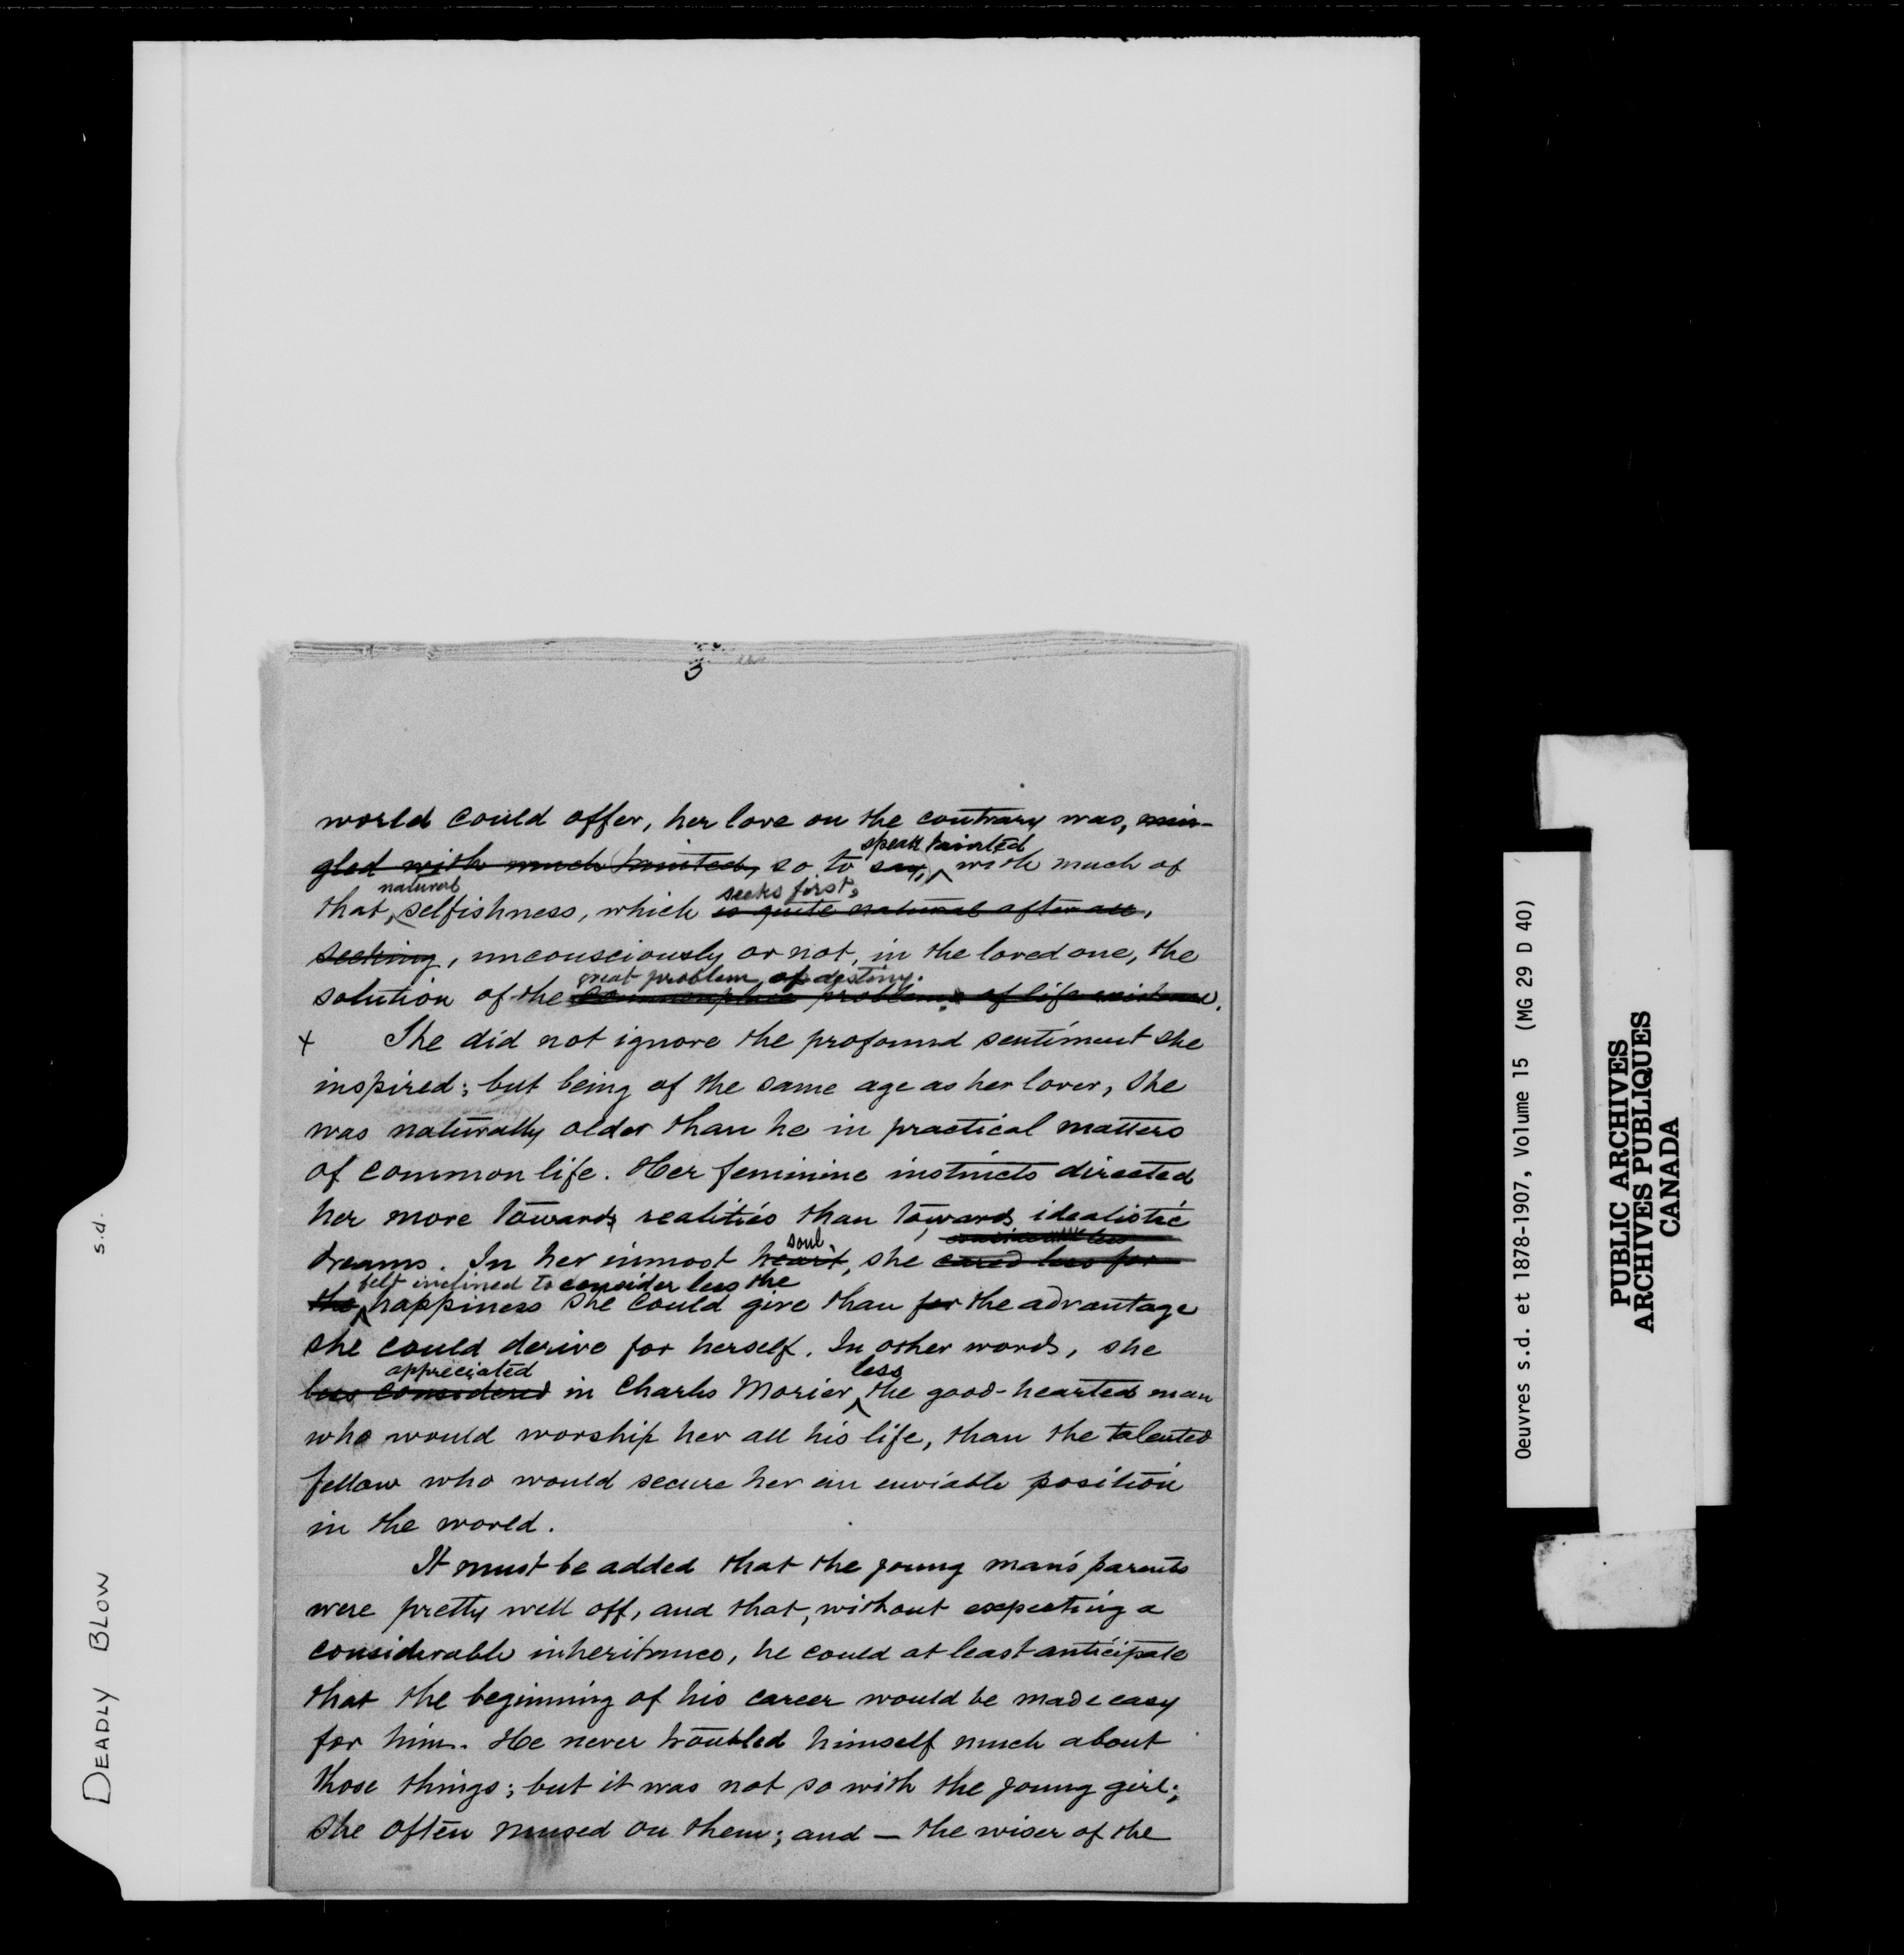 3
world could offer, her love on the contrary was, min-
speak tainted
gled with much tainted, so to say, with much of
natural seeks first,
that selfishness, which is quite natural after all,
seeking, unconsciously or not, in the loved one, the
great problem of destiny.
solution of the commonplace problems of life existence.
+ She did not ignore the profound sentiment she
inspired; but being of the same age as her lover, she
was naturally older than he in practical matters
of common life. Her feminine instincts directed
her more towards realities than towards idealistic
soul,
dreams. In her inmost heart, she cared less for
felt inclined to consider less the
the happiness she could give than for the advantage
she could derive for herself. In other words, she
appreciated less
less considered in Charles Morier the good-hearted man
who would worship her all his life, than the talented
fellow who would secure her an enviable position
in the world.
It must be added that the young man's parents
were pretty well off, and that, without expecting a
considerable inheritance, he could at least anticipate
that the beginning of his career would be made easy
for him. He never troubled himself much about
those things; but it was not so with the young girl;
she often mused on them; and — the wiser of the
DEADLY BLOW s.d.
Oeuvres s.d. et 1878-1907, Volume 15 (MG 29 D 40)
PUBLIC ARCHIVES
ARCHIVES PUBLIQUES
CANADA